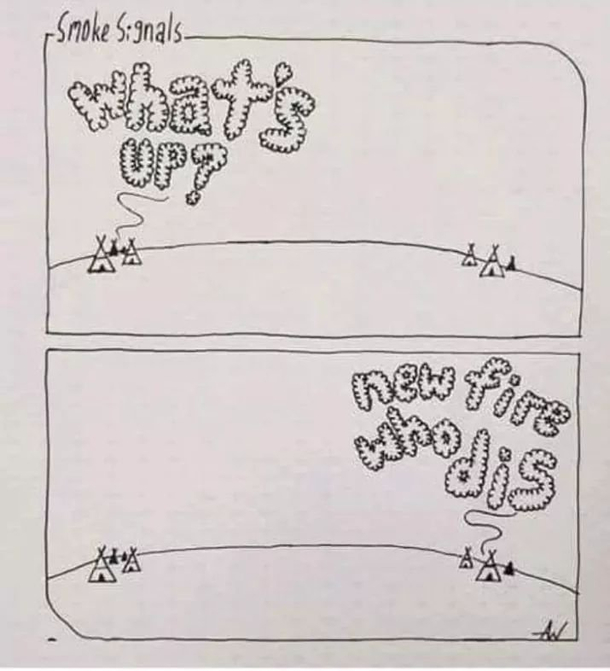 Smoke Signals
What's
UP?
new fire
who
dis
AW